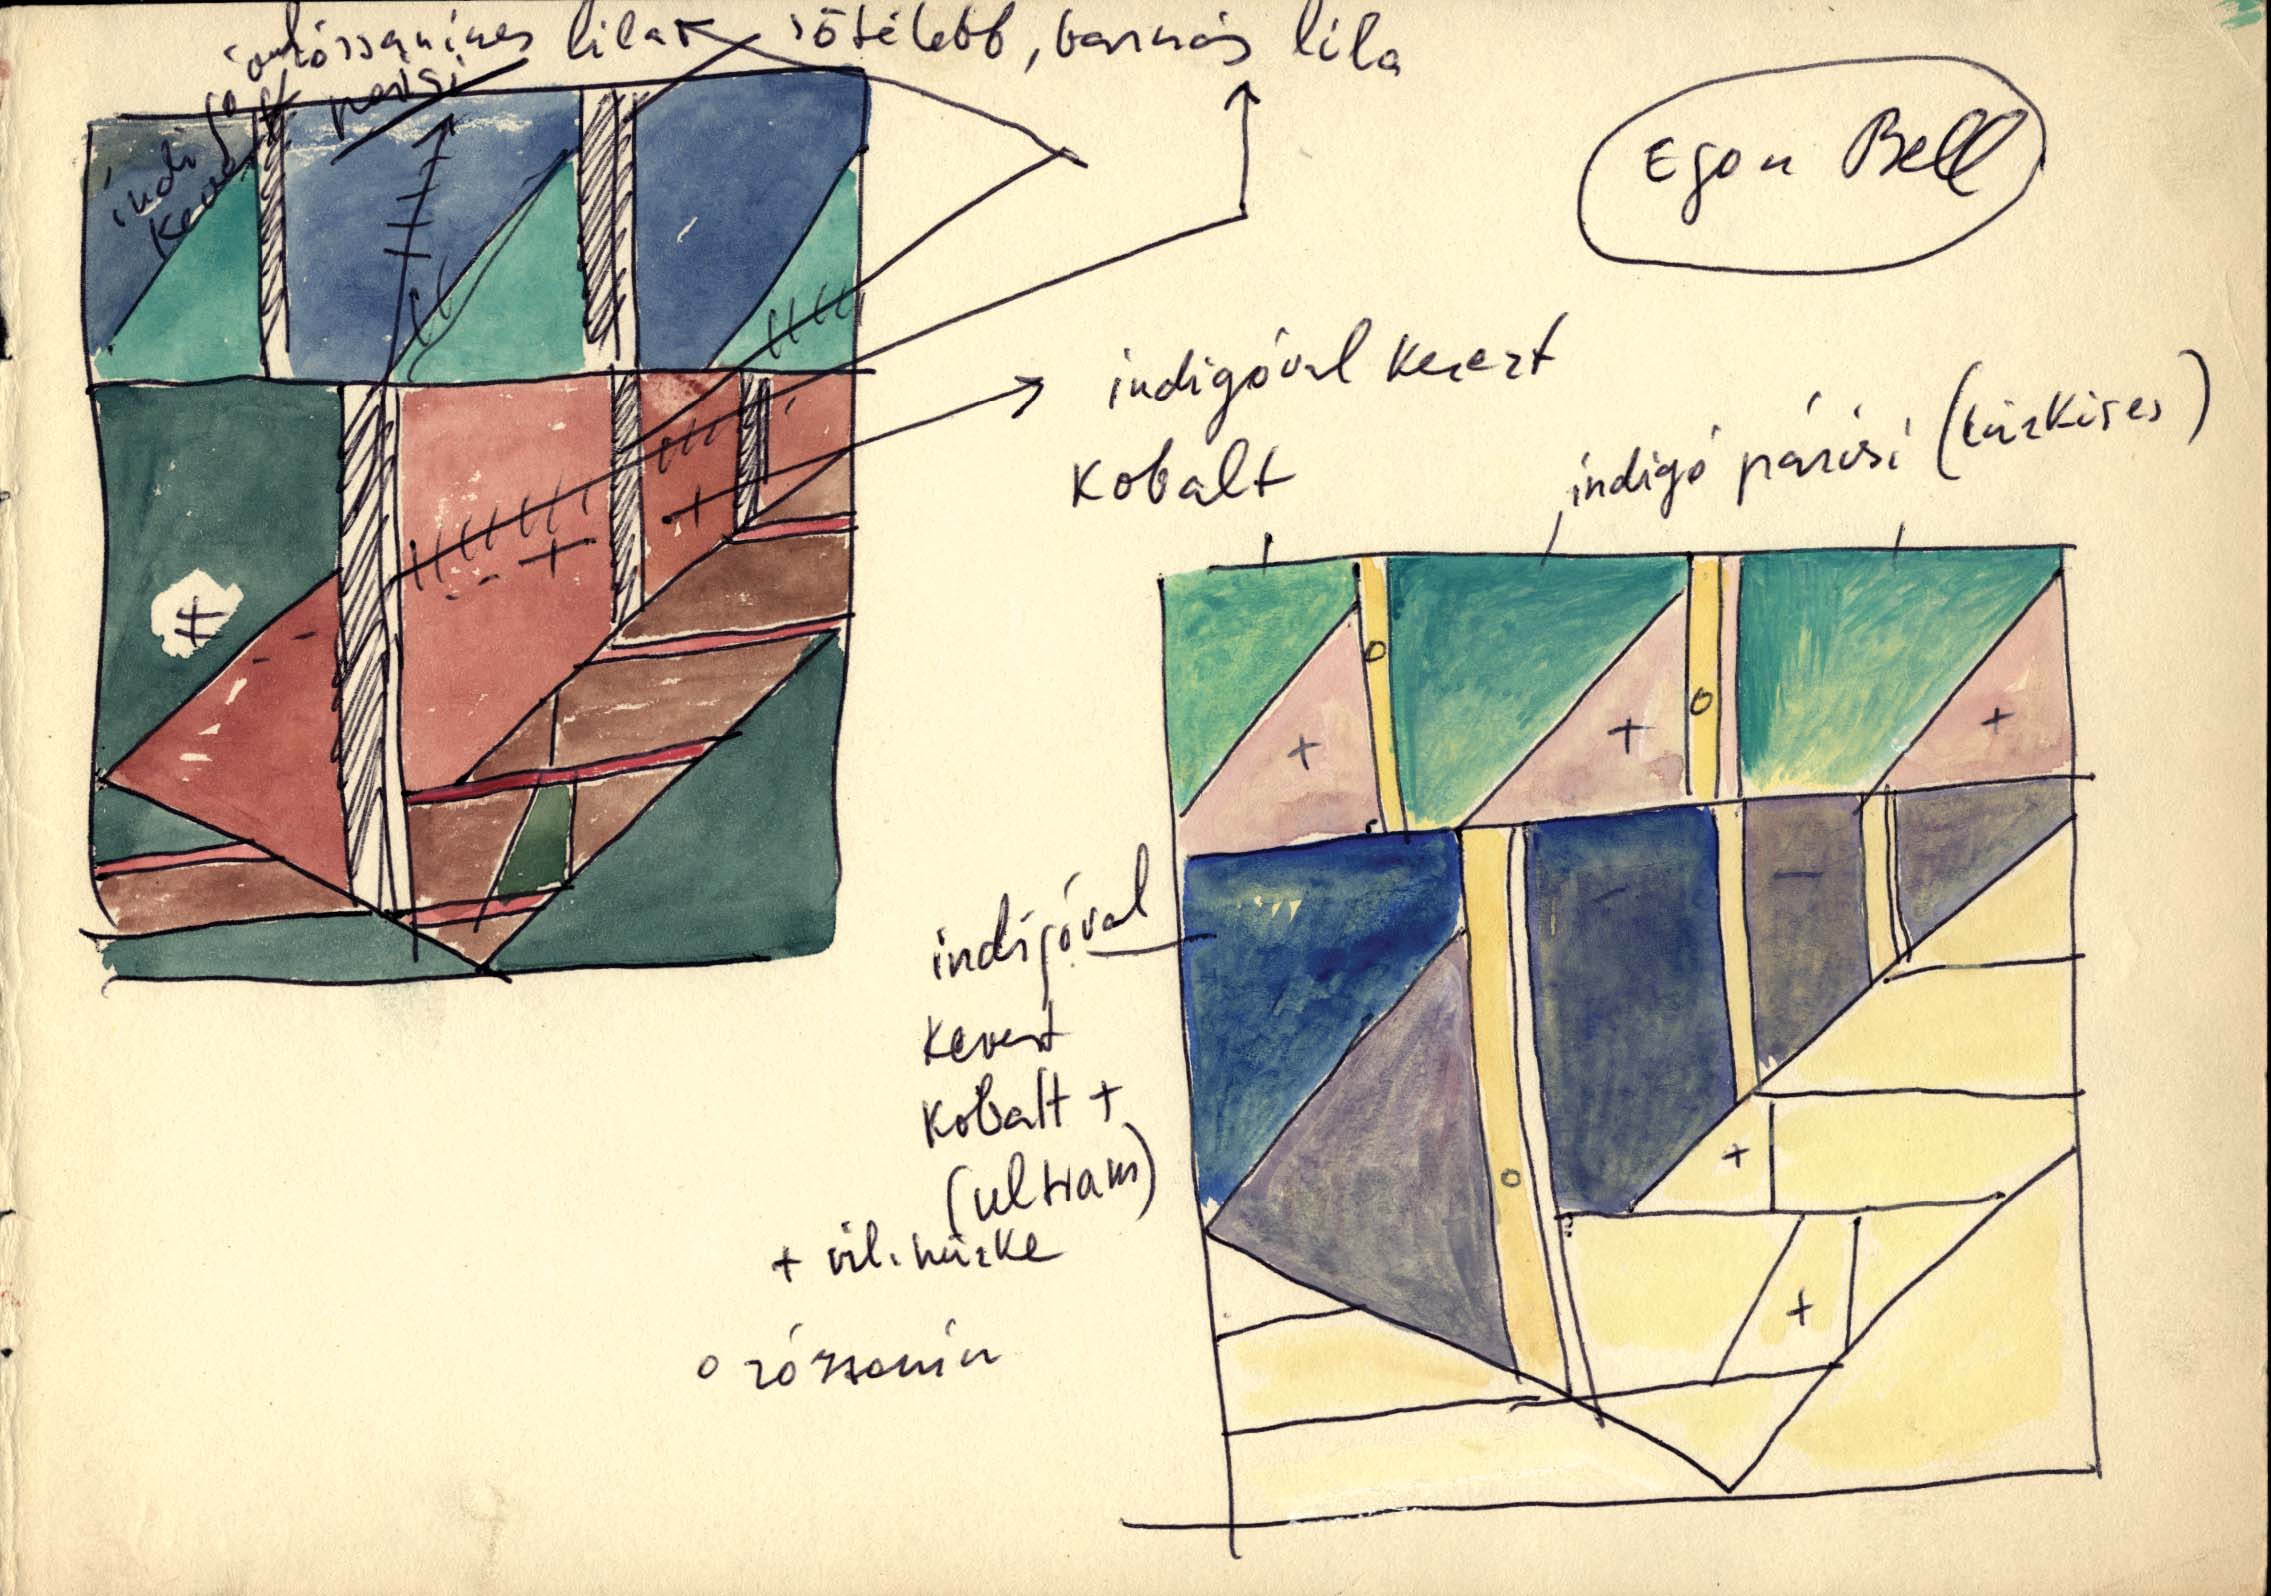 lila sötétebb, barnás lila
párisi
Egon Bell
indigóval kevert
kobalt
indigó párisi (türkises)
indigóval
kevert
kobalt +
(ultram)
+ vil. türke
o